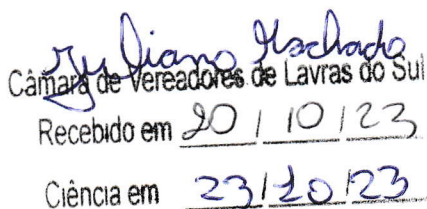 Juliano Machado
Câmara de Vereadores de Lavras do Sul
Recebido em 20 / 10 / 23
Ciência em 23/10/23